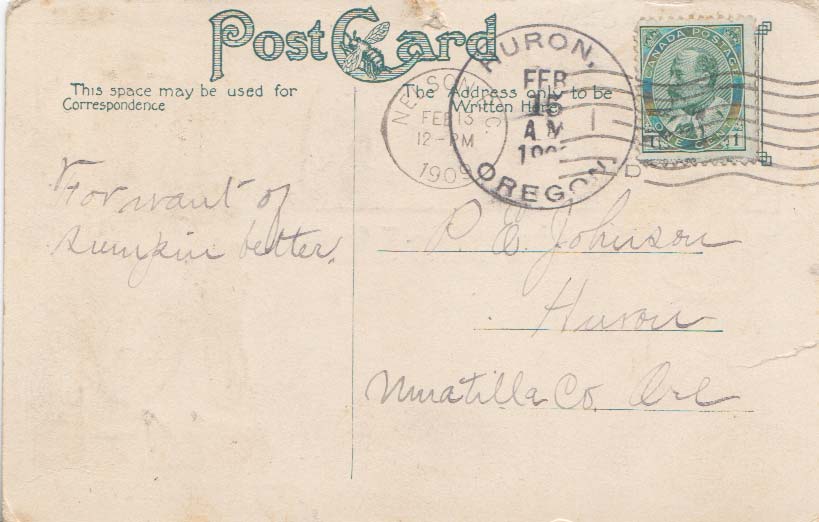 Post Card
This space may be used for
Correspondence
The Address only to be
Written Here
NELSON
FEB 13
12-PM
1909
HURON,
FEB
15
A.M
190
OREGON.
CANADA POSTAGE
ONE CENT
1 1
D
For want of
sumpin better.
P. E. Johnson
Huron
Umatilla Co. Ore